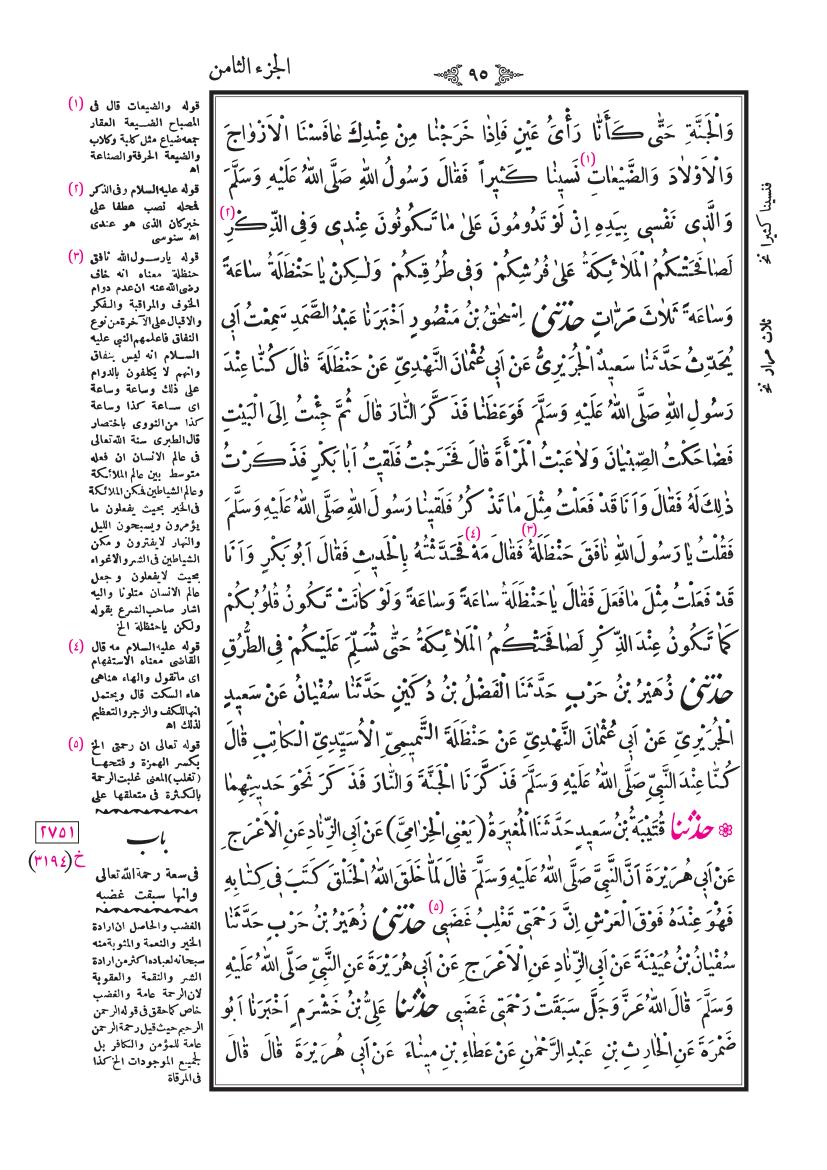 الجزء الثامن
٩٥
وَالْجَنَّةِ حَتّٰى كَأَنَّا رَأْىُ عَيْنٍ فَاِذَا خَرَجْنَا مِنْ عِنْدِكَ عَافَسْنَا الْاَزْوَاجَ
وَالْاَوْلَادَ وَالضَّيْعَاتِ(١) نَسِينَا كَثِيراً فَقَالَ رَسُولُ اللهِ صَلَّى اللهُ عَلَيْهِ وَسَلَّمَ
وَالَّذِى نَفْسِى بِيَدِهِ اِنْ لَوْ تَدُومُونَ عَلىٰ مَا تَكُونُونَ عِنْدِى وَفِى الذِّكْرِ(٢)
لَصَافَحَتْكُمُ الْمَلَائِكَةُ عَلىٰ فُرُشِكُمْ وَفِى طُرُقِكُمْ وَلٰكِنْ يَا حَنْظَلَةُ سَاعَةً
وَسَاعَةً ثَلَاثَ مَرَّاتٍ حَدَّثَنِى اِسْحٰقُ بْنُ مَنْصُورٍ اَخْبَرَنَا عَبْدُ الصَّمَدِ سَمِعْتُ اَبِى
يُحَدِّثُ حَدَّثَنَا سَعِيدٌ الْجُرَيْرِىُّ عَنْ اَبِى عُثْمَانَ النَّهْدِىِّ عَنْ حَنْظَلَةَ قَالَ كُنَّا عِنْدَ
رَسُولِ اللهِ صَلَّى اللهُ عَلَيْهِ وَسَلَّمَ فَوَعَظَنَا فَذَكَّرَ النَّارَ قَالَ ثُمَّ جِئْتُ اِلَى الْبَيْتِ
فَضَاحَكْتُ الصِّبْيَانَ وَلَاعَبْتُ الْمَرْأَةَ قَالَ فَخَرَجْتُ فَلَقِيتُ اَبَا بَكْرٍ فَذَكَرْتُ
ذٰلِكَ لَهُ فَقَالَ وَاَنَا قَدْ فَعَلْتُ مِثْلَ مَا تَذْكُرُ فَلَقِينَا رَسُولَ اللهِ صَلَّى اللهُ عَلَيْهِ وَسَلَّمَ
فَقُلْتُ يَا رَسُولَ اللهِ نَافَقَ حَنْظَلَةُ(٣) فَقَالَ مَهْ(٤) فَحَدَّثْتُهُ بِالْحَدِيثِ فَقَالَ اَبُو بَكْرٍ وَاَنَا
قَدْ فَعَلْتُ مِثْلَ مَا فَعَلَ فَقَالَ يَا حَنْظَلَةُ سَاعَةً وَسَاعَةً وَلَوْ كَانَتْ تَكُونُ قُلُوبُكُمْ
كَمَا تَكُونُ عِنْدَ الذِّكْرِ لَصَافَحَتْكُمُ الْمَلَائِكَةُ حَتّٰى تُسَلِّمَ عَلَيْكُمْ فِى الطُّرُقِ
حَدَّثَنِى زُهَيْرُ بْنُ حَرْبٍ حَدَّثَنَا الْفَضْلُ بْنُ دُكَيْنٍ حَدَّثَنَا سُفْيَانُ عَنْ سَعِيدٍ
الْجُرَيْرِىِّ عَنْ اَبِى عُثْمَانَ النَّهْدِىِّ عَنْ حَنْظَلَةَ التَّمِيمِىِّ الْاُسَيِّدِىِّ الْكَاتِبِ قَالَ
كُنَّا عِنْدَ النَّبِىِّ صَلَّى اللهُ عَلَيْهِ وَسَلَّمَ فَذَكَّرَنَا الْجَنَّةَ وَالنَّارَ فَذَكَرَ نَحْوَ حَدِيثِهِمَا
حَدَّثَنَا قُتَيْبَةُ بْنُ سَعِيدٍ حَدَّثَنَا الْمُغِيرَةُ (يَعْنِى الْحِزَامِىَّ) عَنْ اَبِى الزِّنَادِ عَنِ الْاَعْرَجِ
عَنْ اَبِى هُرَيْرَةَ اَنَّ النَّبِىَّ صَلَّى اللهُ عَلَيْهِ وَسَلَّمَ قَالَ لَمَّا خَلَقَ اللهُ الْخَلْقَ كَتَبَ فِى كِتَابِهِ
فَهُوَ عِنْدَهُ فَوْقَ الْعَرْشِ اِنَّ رَحْمَتِى تَغْلِبُ غَضَبِى(٥) حَدَّثَنِى زُهَيْرُ بْنُ حَرْبٍ حَدَّثَنَا
سُفْيَانُ بْنُ عُيَيْنَةَ عَنْ اَبِى الزِّنَادِ عَنِ الْاَعْرَجِ عَنْ اَبِى هُرَيْرَةَ عَنِ النَّبِىِّ صَلَّى اللهُ عَلَيْهِ
وَسَلَّمَ قَالَ اللهُ عَزَّ وَجَلَّ سَبَقَتْ رَحْمَتِى غَضَبِى حَدَّثَنَا عَلِىُّ بْنُ خَشْرَمٍ اَخْبَرَنَا اَبُو
ضَمْرَةَ عَنِ الْحَارِثِ بْنِ عَبْدِ الرَّحْمٰنِ عَنْ عَطَاءِ بْنِ مِينَاءَ عَنْ اَبِى هُرَيْرَةَ قَالَ قَالَ
فنسينا كثيرا نخ
ثلاث مرار نخ
(١) قوله والضيعات قال فى
المصباح الضيعة العقار
جمعه ضياع مثل كلبة وكلاب
والضيعة الحرفة والصناعة
اه
(٢) قوله عليه السلام وفى الذكر
فمحله نصب عطفا على
خبركان الذى هو عندى
اه سنوسى
(٣) قوله يارسول الله نافق
حنظلة معناه انه خاف
رضى الله عنه ان عدم دوام
الخوف والمراقبة والفكر
والاقبال على الآخرة من نوع
النفاق فاعلمهم النبى عليه
السلام انه ليس بنفاق
وانهم لا يكلفون بالدوام
على ذلك وساعة وساعة
اى ساعة كذا وساعة
كذا من النووى باختصار
قال الطبرى سنة الله تعالى
فى عالم الانسان ان فعله
متوسط بين عالم الملائكة
وعالم الشياطين فمكن الملائكة
فى الخير بحيث يفعلون ما
يؤمرون ويسبحون الليل
والنهار لايفترون ومكن
الشياطين فى الشر والاغواء
بحيث لايفعلون وجعل
عالم الانسان متلونا واليه
اشار صاحب الشرع بقوله
ولكن ياحنظلة الخ
(٤) قوله عليه السلام مه قال
القاضى معناه الاستفهام
اى ماتقول والهاء هناهى
هاء السكت قال ويحتمل
انها للكف والزجر والتعظيم
لذلك اه
(٥) قوله تعالى ان رحمتى الخ
بكسر الهمزة وفتحها
(تغلب) المعنى غلبت الرحمة
بالكثرة فى متعلقها على
باب
٢٧٥١
خ (٣١٩٤)
فى سعة رحمة الله تعالى
وانها سبقت غضبه
الغضب والحاصل ان ارادة
الخير والنعمة والمثوبة منه
سبحانه لعباده اكثر من ارادة
الشر والنقمة والعقوبة
لان الرحمة عامة والغضب
خاص كما حقق فى قوله الرحمن
الرحيم حيث قيل رحمة الرحمن
عامة للمؤمن والكافر بل
لجميع الموجودات الخ كذا
فى المرقاة